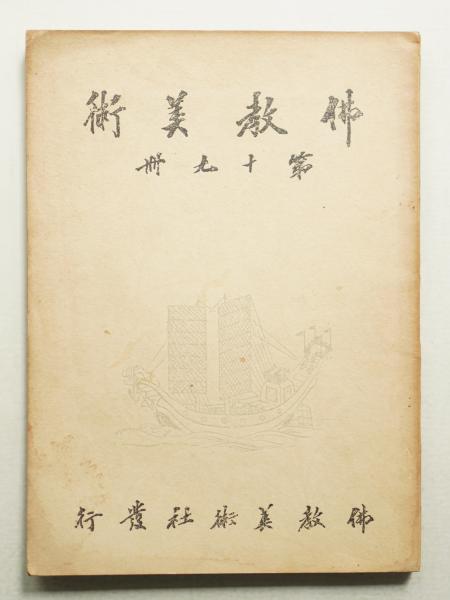 佛教美術
第十九冊
佛教美術社發行